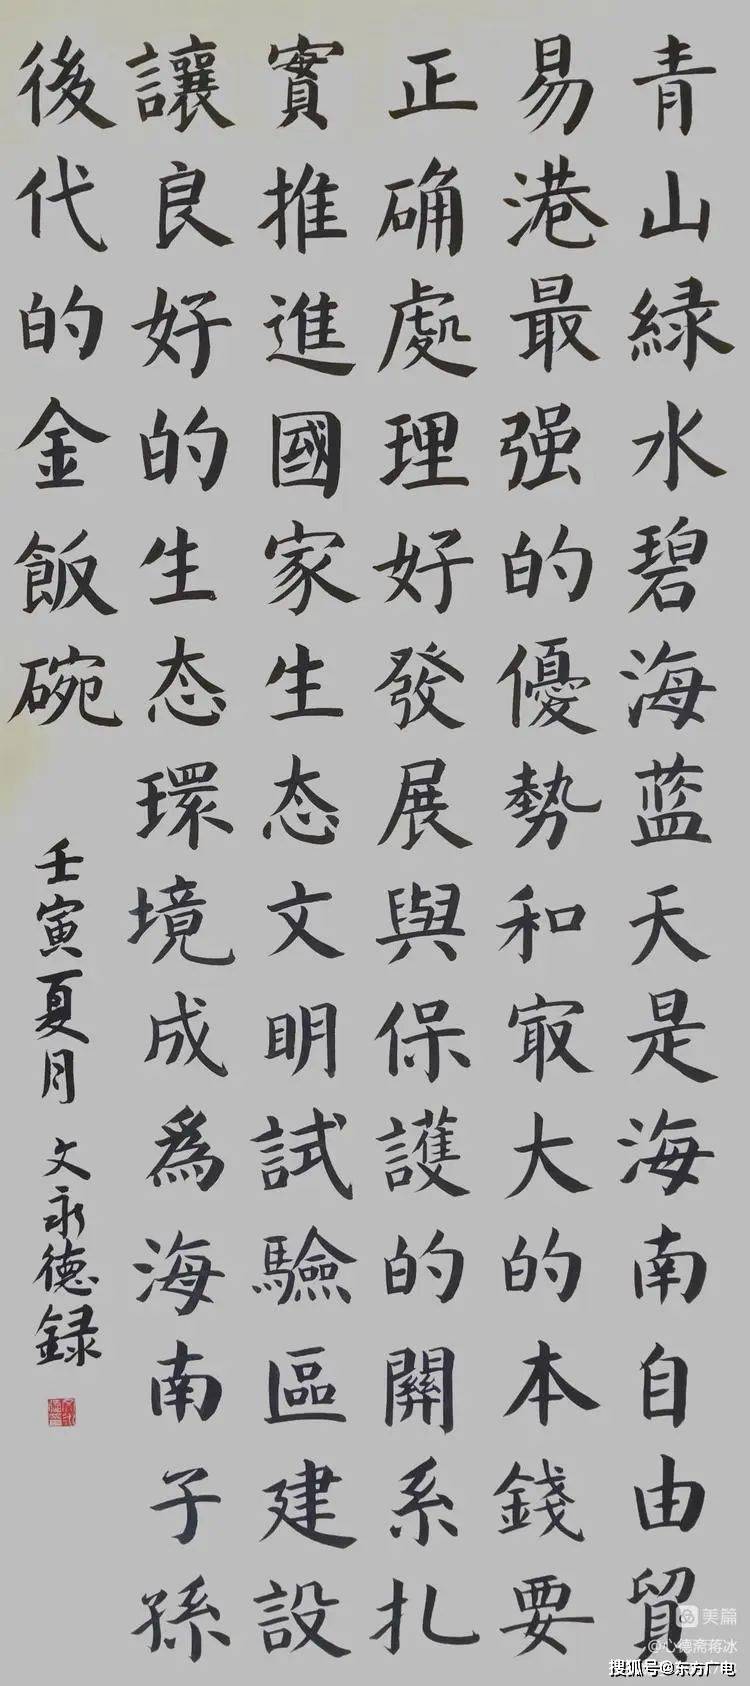 青山緑水碧海蓝天是海南自由貿
易港最强的優勢和冣大的本錢要
正确處理好發展與保護的關系扎
實推進國家生态文明試驗區建設
讓良好的生态環境成爲海南子孫
後代的金飯碗
壬寅夏月 文永德録
美篇
@心德斋蒋冰
搜狐号@东方广电